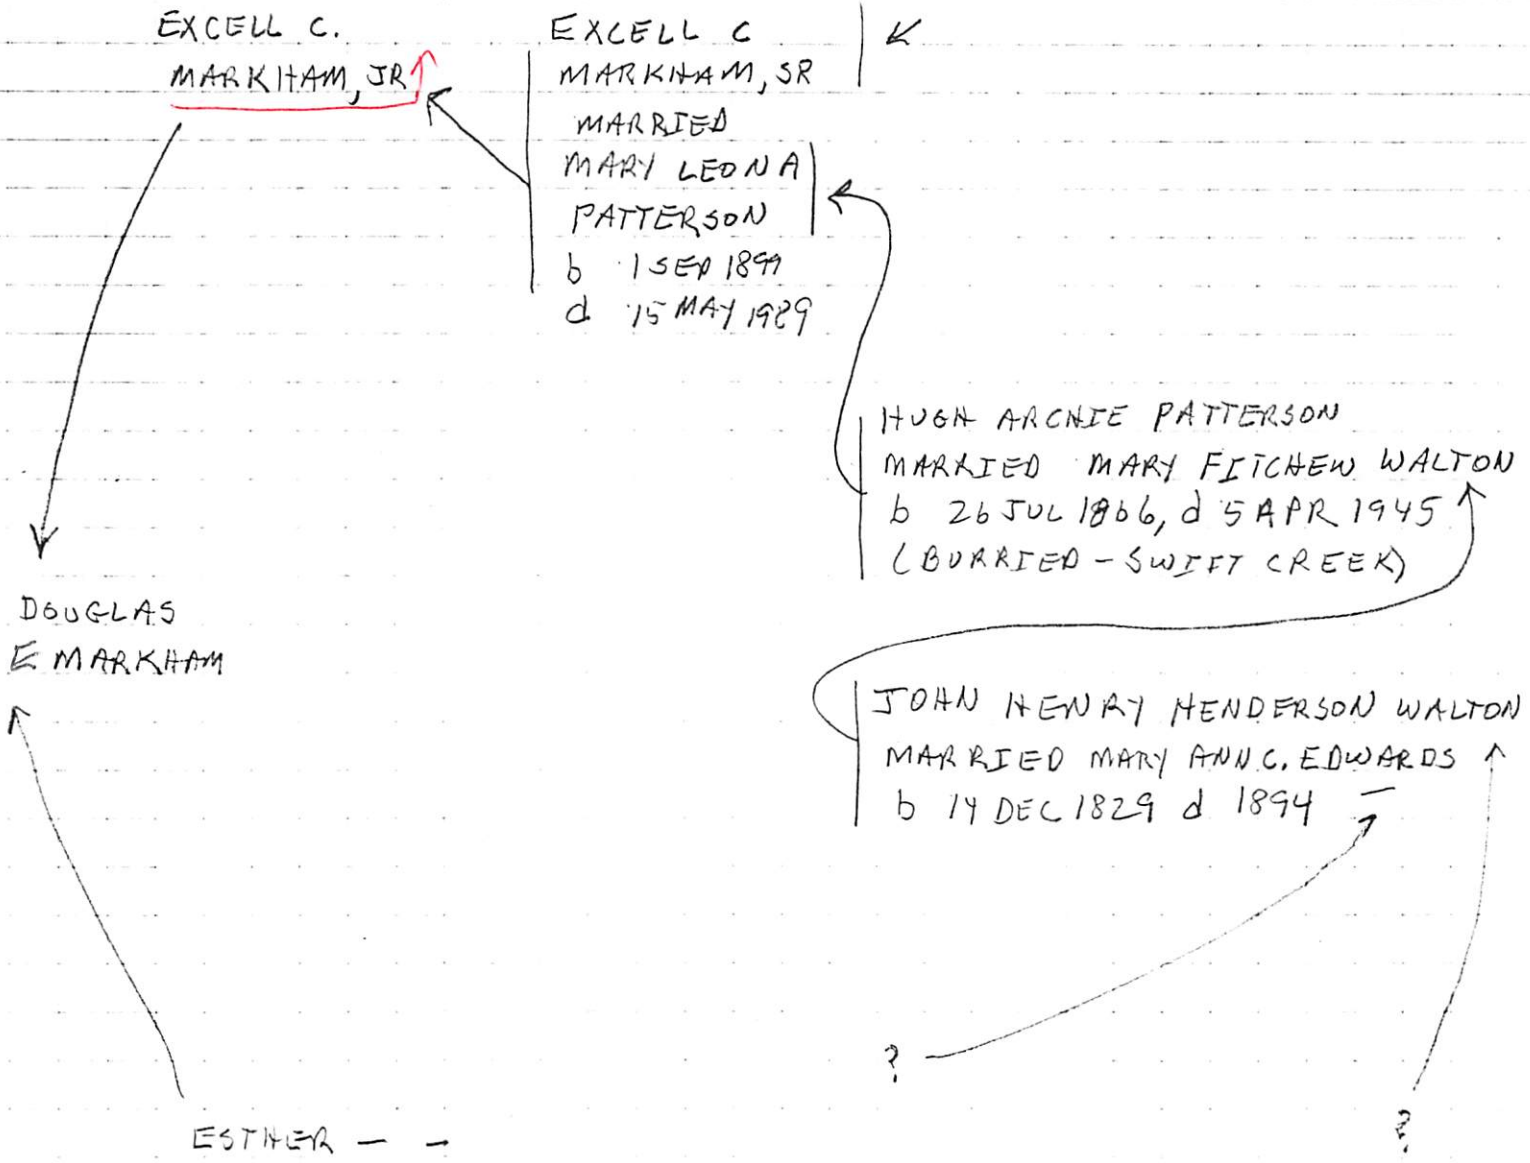 EXCELL C.
MARKHAM, JR
EXCELL C
MARKHAM, SR
MARRIED
MARY LEONA
PATTERSON
b 1 SEP 1899
d 15 MAY 1989
HUGH ARCHIE PATTERSON
MARRIED MARY FITCHEW WALTON
b 26 JUL 1866, d 5 APR 1945
(BURRIED - SWIFT CREEK)
DOUGLAS
E MARKHAM
JOHN HENRY HENDERSON WALTON
MARRIED MARY ANN C. EDWARDS
b 14 DEC 1829 d 1894 —
?
?
ESTHER — —